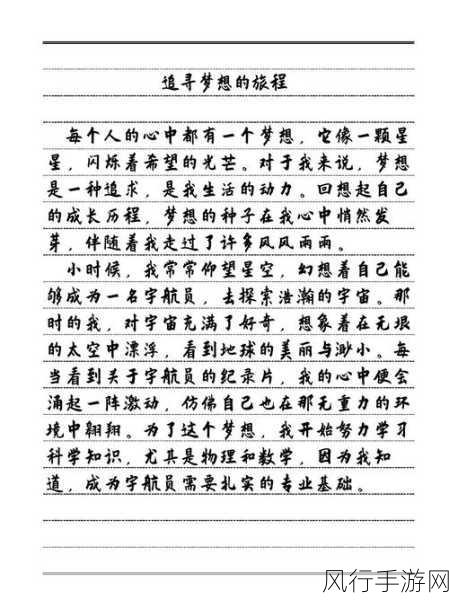 追寻梦想的旅程
每个人的心中都有一个梦想，它像一颗星
星，闪烁着希望的光芒。对于我来说，梦想
是一种追求，是我生活的动力。回想起自己
的成长历程，梦想的种子在我心中悄然发
芽，伴随着我走过了许多风风雨雨。
小时候，我常常仰望星空，幻想着自己能
够成为一名宇航员，去探索浩瀚的宇宙。那
时的我，对宇宙充满了好奇，想象着在无垠
的太空中漂浮，看到地球的美丽与渺小。每
当看到关于宇航员的纪录片，我的心中便会
涌起一阵激动，仿佛自己也在那无重力的环
境中翱翔。为了这个梦想，我开始努力学习
科学知识，尤其是物理和数学，因为我知
道，成为宇航员需要扎实的专业基础。
风行手游网